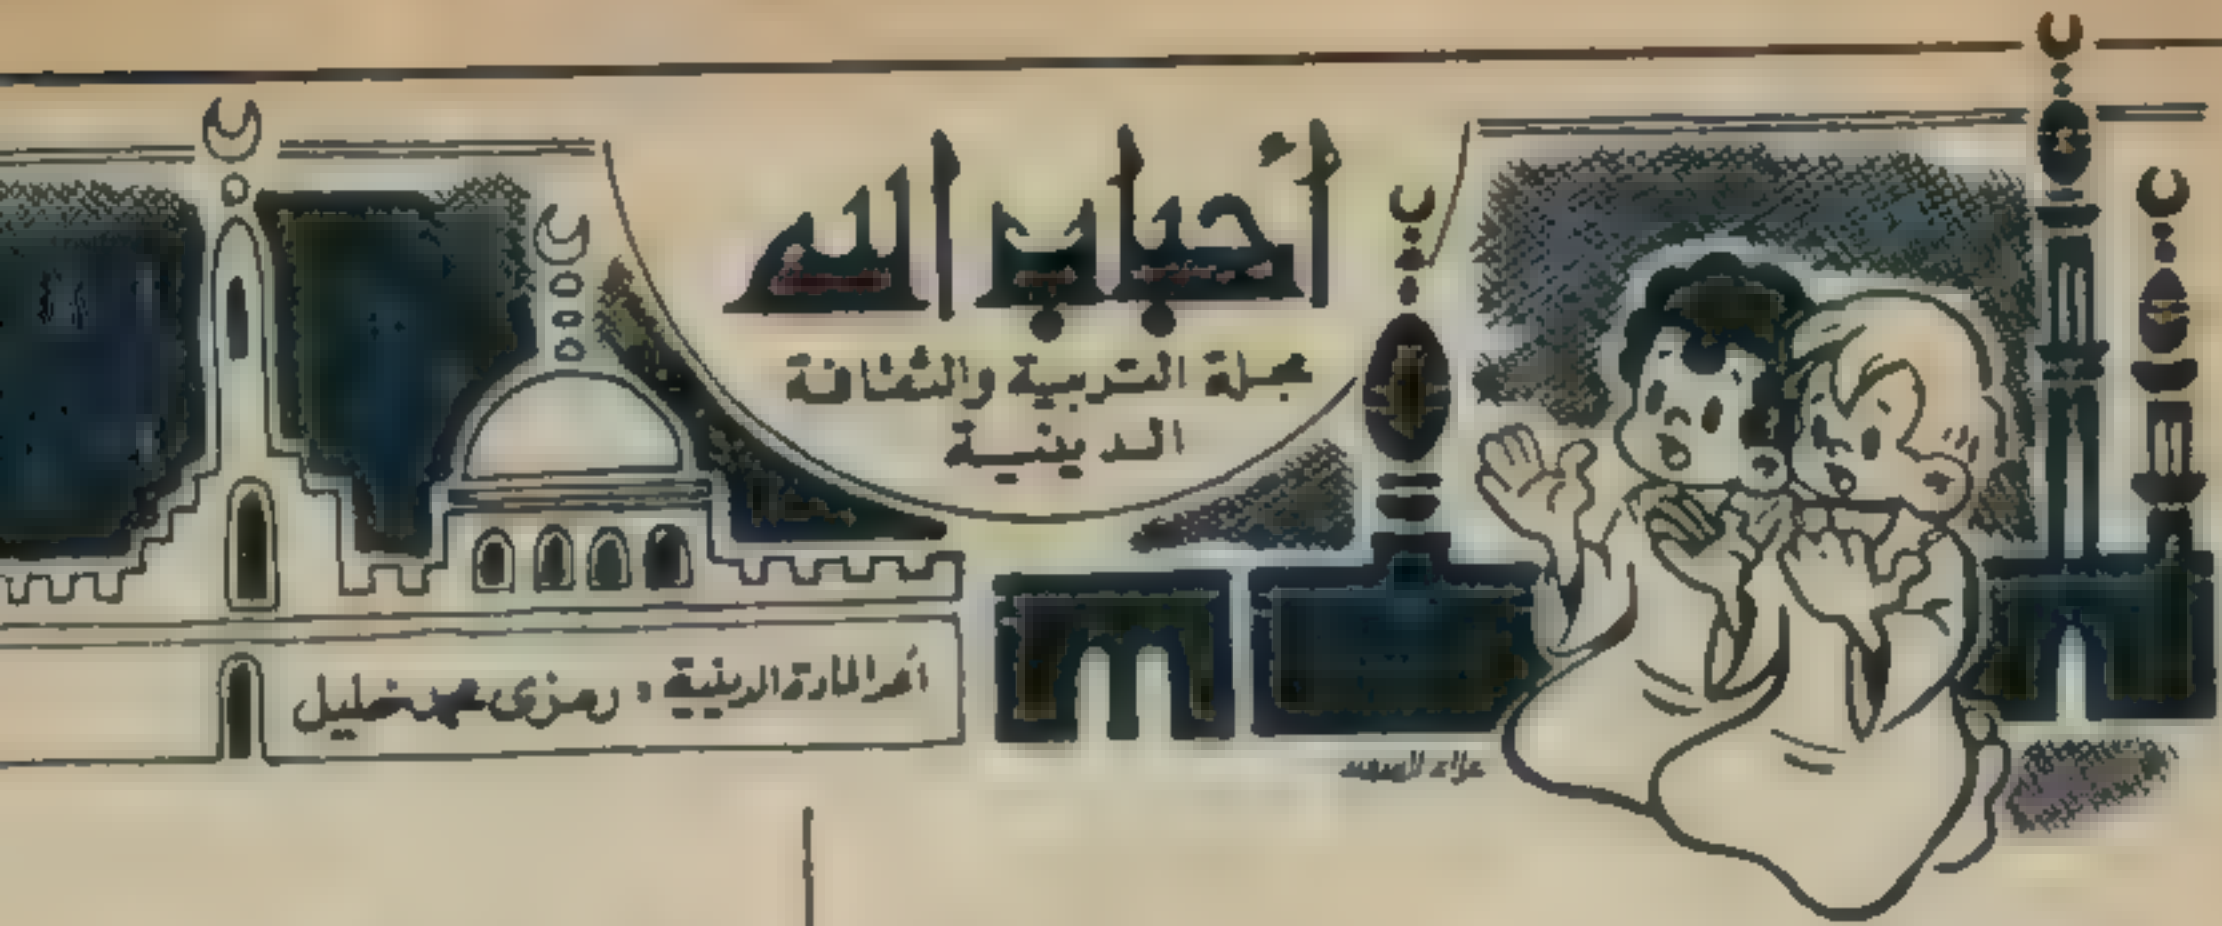 أحباب الله
مجلة التربية والثقافة
الدينية
المادة الدينية : رمزى محمد خليل
علاء السعيد